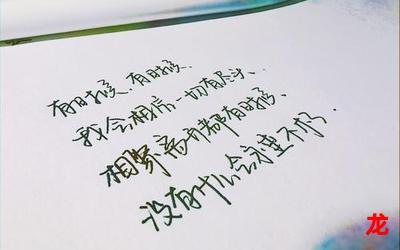 有时候，有时候，
我会相信一切有尽头、
相聚离开都有时候、
没有什么会永垂不朽．
龙